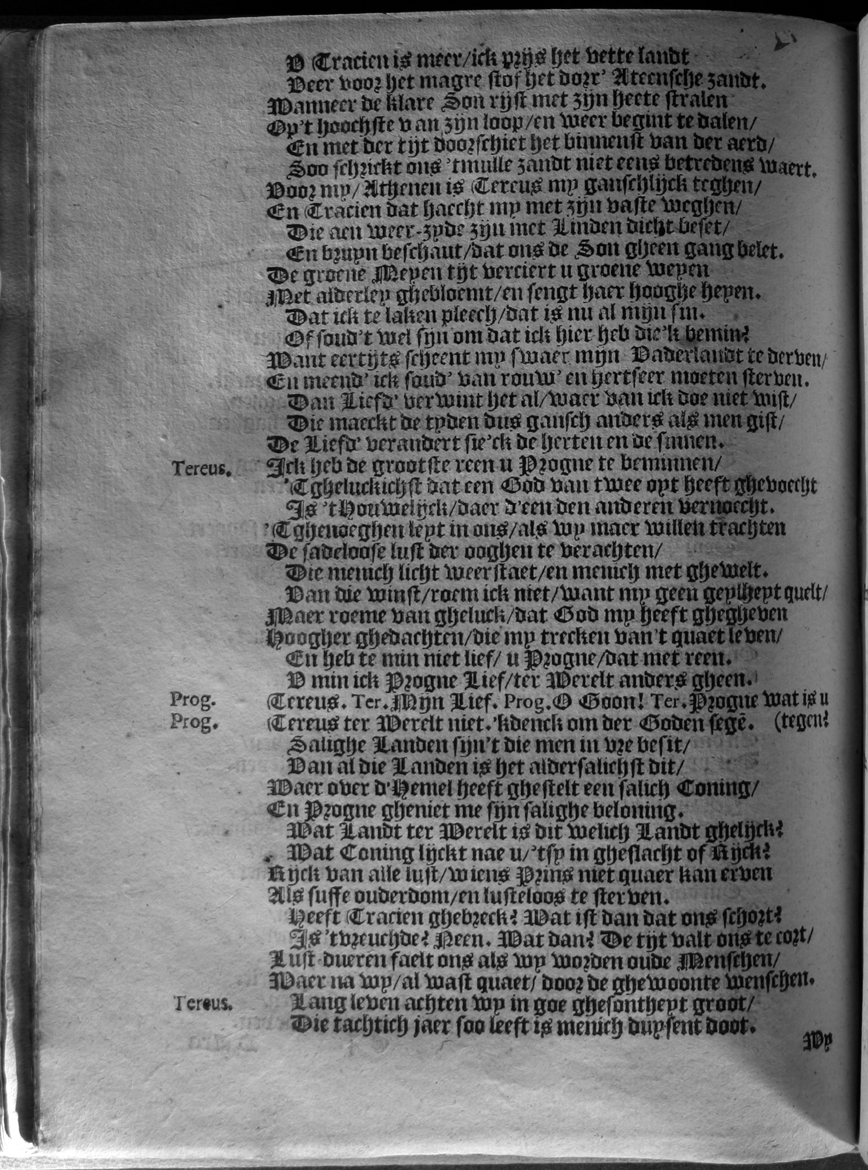 U Tracien is meer/ick prijs het vette landt
Veer voor het magre stof het dorr' Ateensche zandt.
Wanneer de klare Son rijst met zijn heete stralen
Op't hoochste van zijn loop/en weer begint te dalen/
En met der tijt doorschiet het binnenst van der aerd/
Soo schrickt ons 'tmulle zandt niet eens betredens waert.
Voor my/Athenen is Tereus my ganschlijck teghen/
En Tracien dat haecht my met zijn vaste weghen/
Die aen weer-zyde zijn met Linden dicht beset/
En bruyn beschaut/dat ons de Son gheen gang belet.
De groene Meyen tijt verciert u groene weyen
Met alderley ghebloemt/en sengt haer hooghe heyen.
Dat ick te laken pleech/dat is nu al mijn sin.
Of soud't wel sijn om dat ick hier heb die'k bemin?
Want eertijts scheent my swaer mijn Vaderlandt te derven/
En meend' ick soud' van rouw' en hertseer moeten sterven.
Dan Liefd' verwint het al/waer van ick doe niet wist/
Die maeckt de tyden dus gansch anders als men gist/
De Liefd' verandert sie'ck de herten en de sinnen.
Tereus. Ick heb de grootste reen u Progne te beminnen/
'Tgheluckichst dat een God van twee oyt heeft ghevoecht
Is 'tHouwelijck/daer d'een den anderen vernoecht.
'Tghenoeghen leyt in ons/als wy maer willen trachten
De sadeloose lust der ooghen te verachten/
Die menich licht weerstaet/en menich met ghewelt.
Van die winst/roem ick niet/want my geen geylheyt quelt/
Maer roeme van gheluck/dat God my heeft ghegheven
Hoogher ghedachten/die my trecken van't quaet leven/
En heb te min niet lief/ u Progne/dat met reen.
U min ick Progne Lief/ter Werelt anders gheen.
Prog. Tereus. Ter. Mijn Lief. Prog. O Goon! Ter. Progne wat is u
Prog. Tereus ter Werelt niet. 'kdenck om der Goden segē. (tegen?
Salighe Landen sijn't die men in vre besit/
Van al die Landen is het aldersalichst dit/
Waer over d'Hemel heeft ghestelt een salich Coning/
En Progne gheniet me sijn salighe beloning.
Wat Landt ter Werelt is dit welich Landt ghelijck?
Wat Coning lijckt nae u/'tsy in gheslacht of Rijck?
Rijck van alle lust/wiens Prins niet quaer kan erven
Als suffe ouderdom/en lusteloos te sterven.
Heeft Tracien ghebreck? Wat ist dan dat ons schort?
Is 'tvreuchde? Neen. Wat dan? De tijt valt ons te cort/
Lust dueren faelt ons als wy worden oude Menschen/
Waer na wy/al wast quaet/ door de ghewoonte wenschen.
Tereus. Lang leven achten wy in goe ghesontheyt groot/
Die tachtich jaer soo leeft is menich duysent doot.
Wy